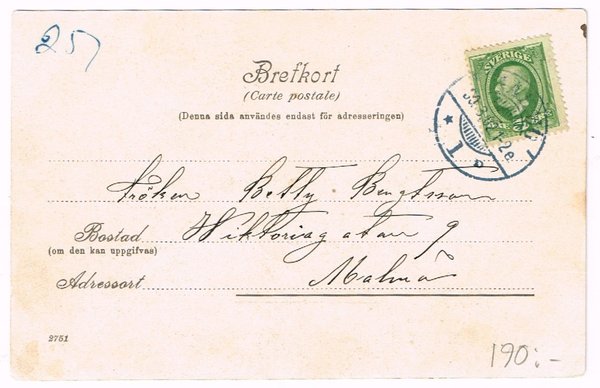 257
Brefkort
(Carte postale)
(Denna sida användes endast för adresseringen)
SVERIGE
Fröken Betty Bengtsson
Bostad Wiktoriagatan 9
(om den kan uppgifvas)
Adressort Malmö
2751
190:-